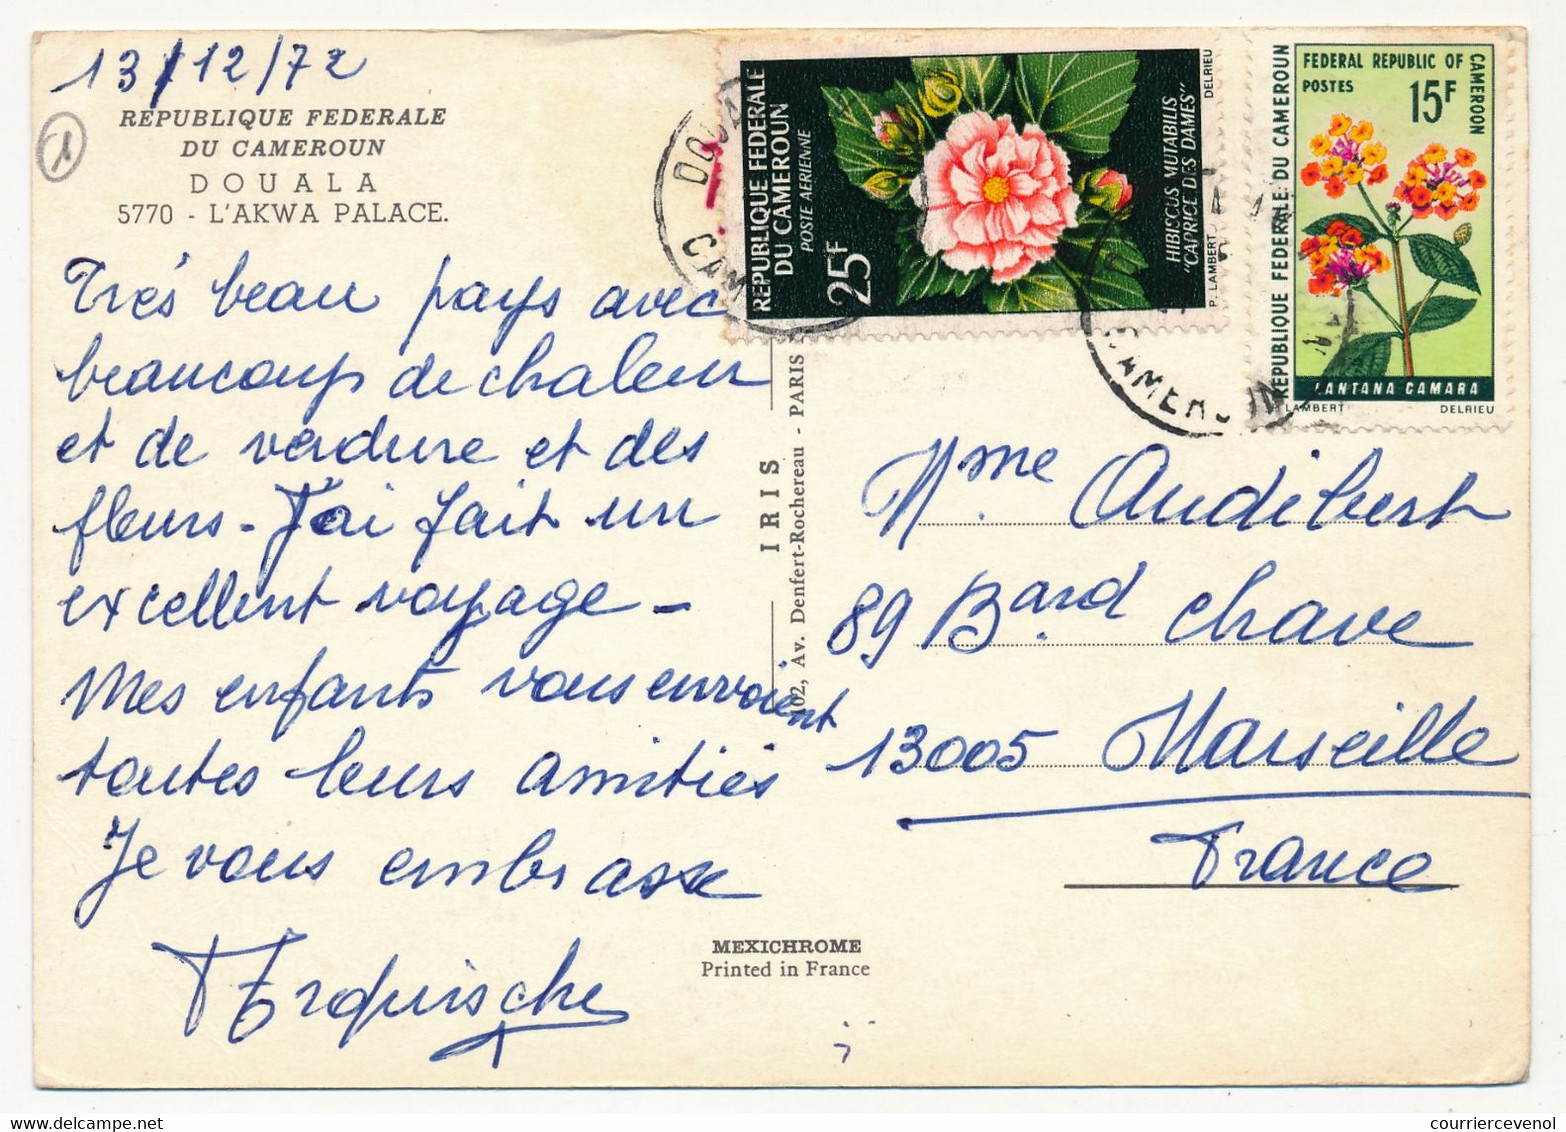 13/12/72
REPUBLIQUE FEDERALE
DU CAMEROUN
DOUALA
5770 - L'AKWA PALACE.
Très beau pays avec
beaucoup de chaleur
et de verdure et des
fleurs - J'ai fait un
excellent voyage -
Mes enfants vous envoient
toutes leurs amitiés
Je vous embrasse
REPUBLIQUE FEDERALE
DU CAMEROUN
POSTE AERIENNE
25F
HIBISCUS MUTABILIS
"CAPRICE DES DAMES"
P. LAMBERT
DELRIEU
FEDERAL REPUBLIC OF CAMEROON
POSTES
15F
REPUBLIQUE FEDERALE DU CAMEROUN
LANTANA CAMARA
LAMBERT
DELRIEU
IRIS
102, Av. Denfert-Rochereau - PARIS
Mme Audibert
89 Bard Chave
13005 Marseille
France
MEXICHROME
Printed in France